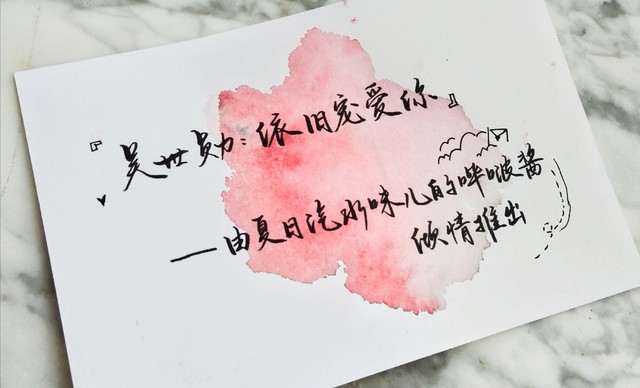 『吴世勋:依旧宠爱你』
—由夏日汽水味儿的哔啵酱
倾情推出